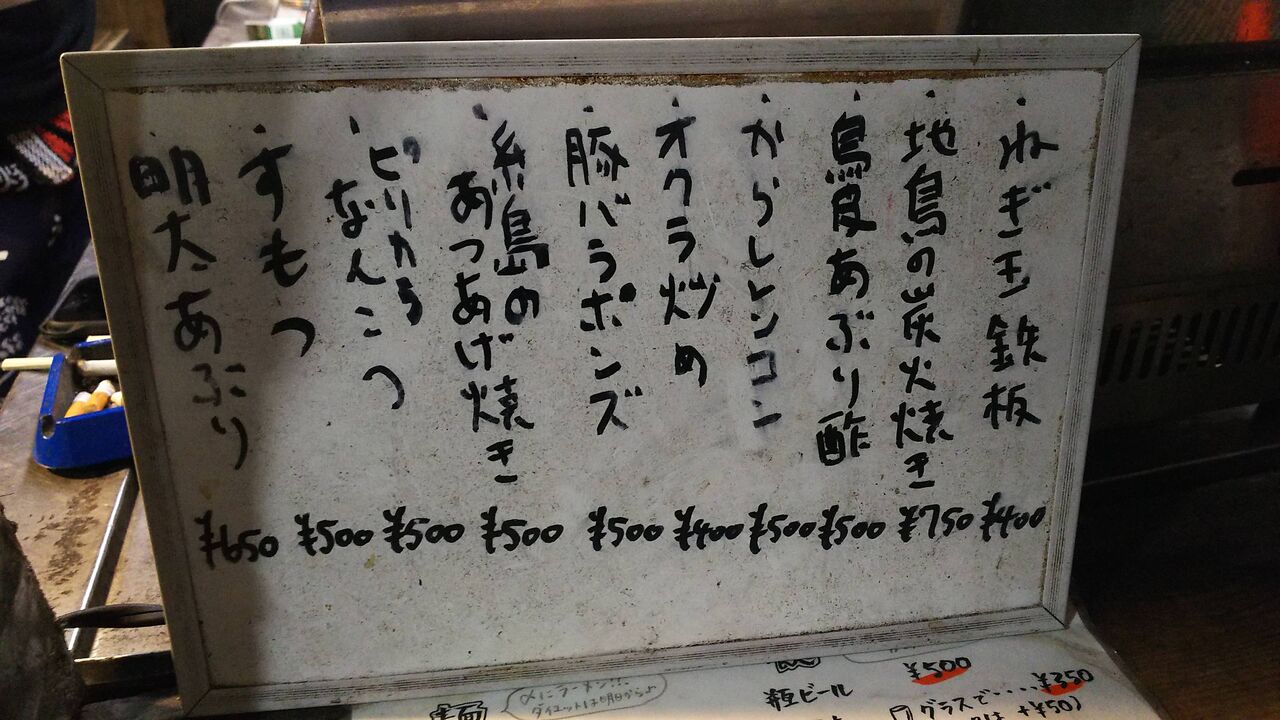 ・ねぎ玉鉄板 ¥400
・地鳥の炭火焼き ¥750
・鳥皮あぶり酢 ¥500
・からしレンコン ¥500
・オクラ炒め ¥400
・豚バラポンズ ¥500
・糸島の
あつあげ焼き ¥500
・ピリカラ
なんこつ ¥500
・すもつ ¥500
・明太あぶり ¥650
¥500
¥250
グラスで・・・・
+¥50)
ビール
〆にラーメン!!
ダイエットは明日からよ
麺